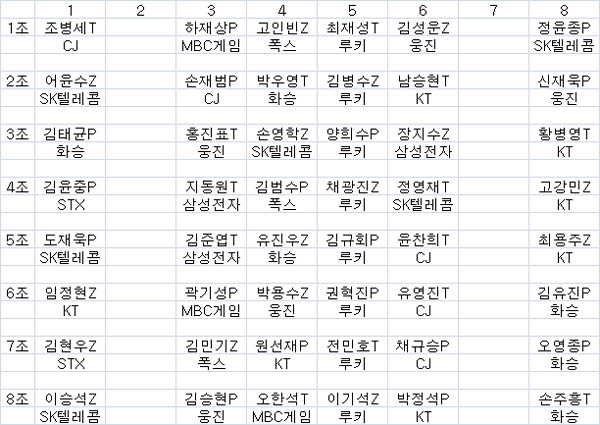 1 2 3 4 5 6 7 8
1조 조병세T 하재상P 고인빈Z 최재성T 김성운Z 정윤종P
CJ MBC게임 폭스 루키 웅진 SK텔레콤
2조 어윤수Z 손재범P 박우영T 김병수Z 남승현T 신재욱P
SK텔레콤 CJ 화승 루키 KT 웅진
3조 김태균P 홍진표T 손영학Z 양희수P 장지수Z 황병영T
화승 웅진 SK텔레콤 루키 삼성전자 KT
4조 김윤중P 지동원T 김범수P 채광진Z 정영재T 고강민Z
STX 삼성전자 폭스 루키 SK텔레콤 KT
5조 도재욱P 김준엽T 유진우Z 김규회P 윤찬희T 최용주Z
SK텔레콤 삼성전자 화승 루키 CJ KT
6조 임정현Z 곽기성P 박용수Z 권혁진P 유영진T 김유진P
KT MBC게임 웅진 루키 CJ 화승
7조 김현우Z 김민기Z 원선재P 전민호T 채규승P 오영종P
STX 폭스 KT 루키 CJ 화승
8조 이승석Z 김승현P 오한석T 이기석Z 박정석P 손주흥T
SK텔레콤 웅진 MBC게임 루키 KT 화승